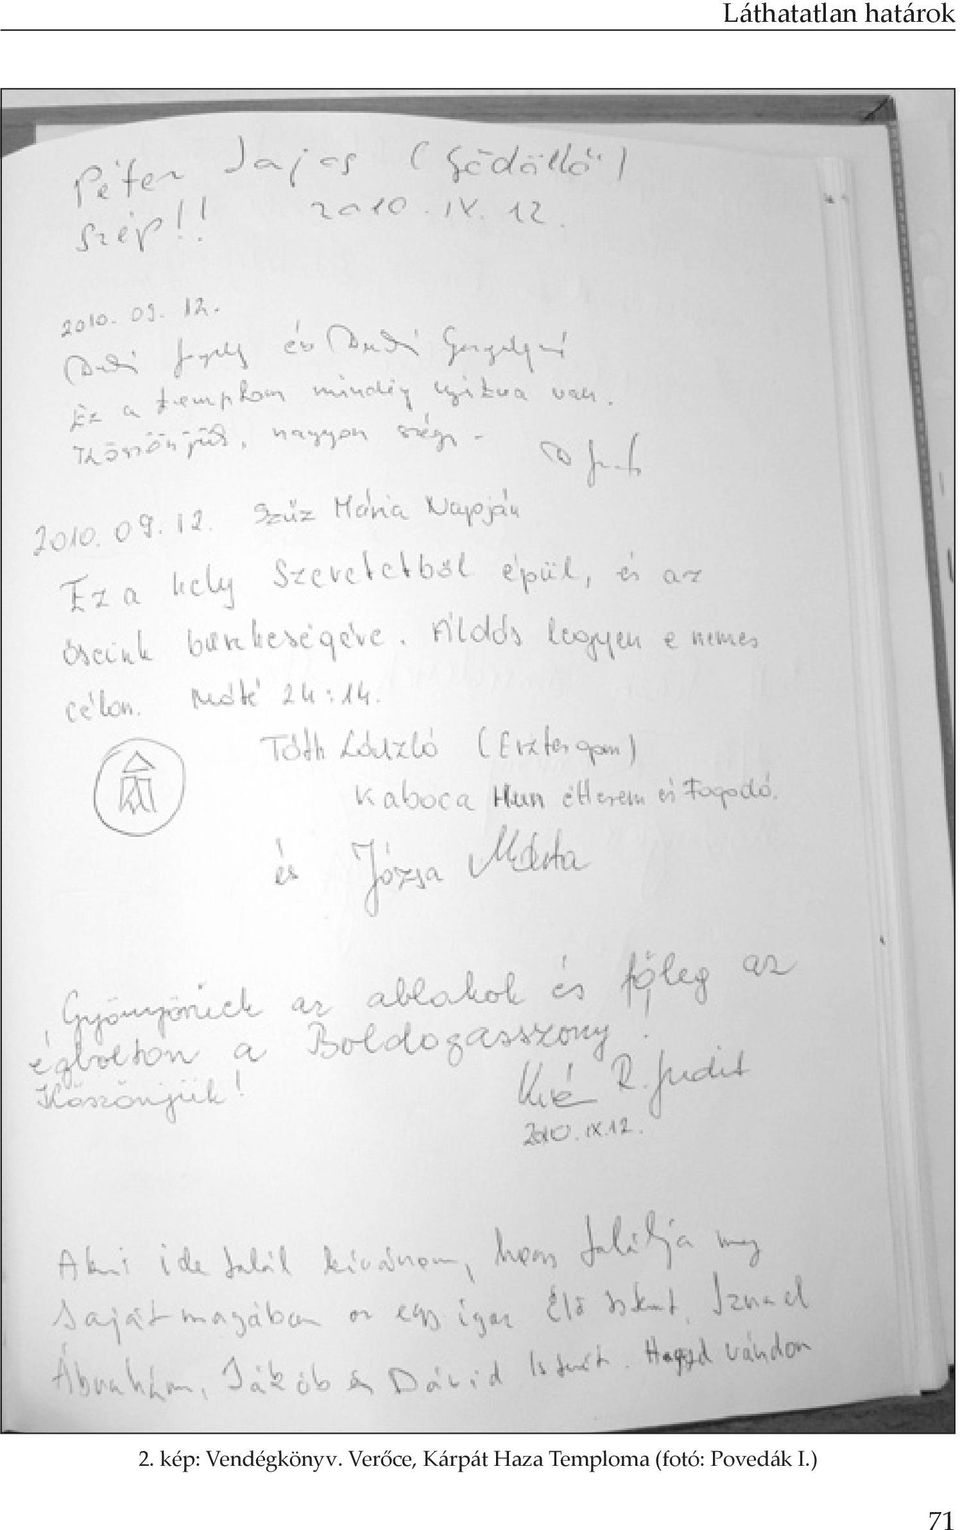 Láthatatlan határok
Péter Lajos (Gödöllő)
Szép!! 2010. IX. 12.
2010. 09. 12.
és
Ez a templom mindég nyitva van.
Köszönjük, nagyon szép
2010. 09. 12. Szűz Mária Napján
Ez a hely Szeretetből épül, és az
őseink büszkeségére. Áldás legyen e nemes
célon. Máté 24:14.
Tóth László (Esztergom)
Kaboca Hun étterem és Fogadó.
és Józsa Márta
Gyönyörűek az ablakok és főleg az
égbolton a Boldogasszony!
Köszönjük! R. Judit
2010. IX. 12.
Aki ide talál kívánom, hogy találja meg
Saját magában az egy igaz Élő Istent, Izrael
Ábrahám, Jákób és Dávid Istenét. vándor
2. kép: Vendégkönyv. Verőce, Kárpát Haza Temploma (fotó: Povedák I.)
71